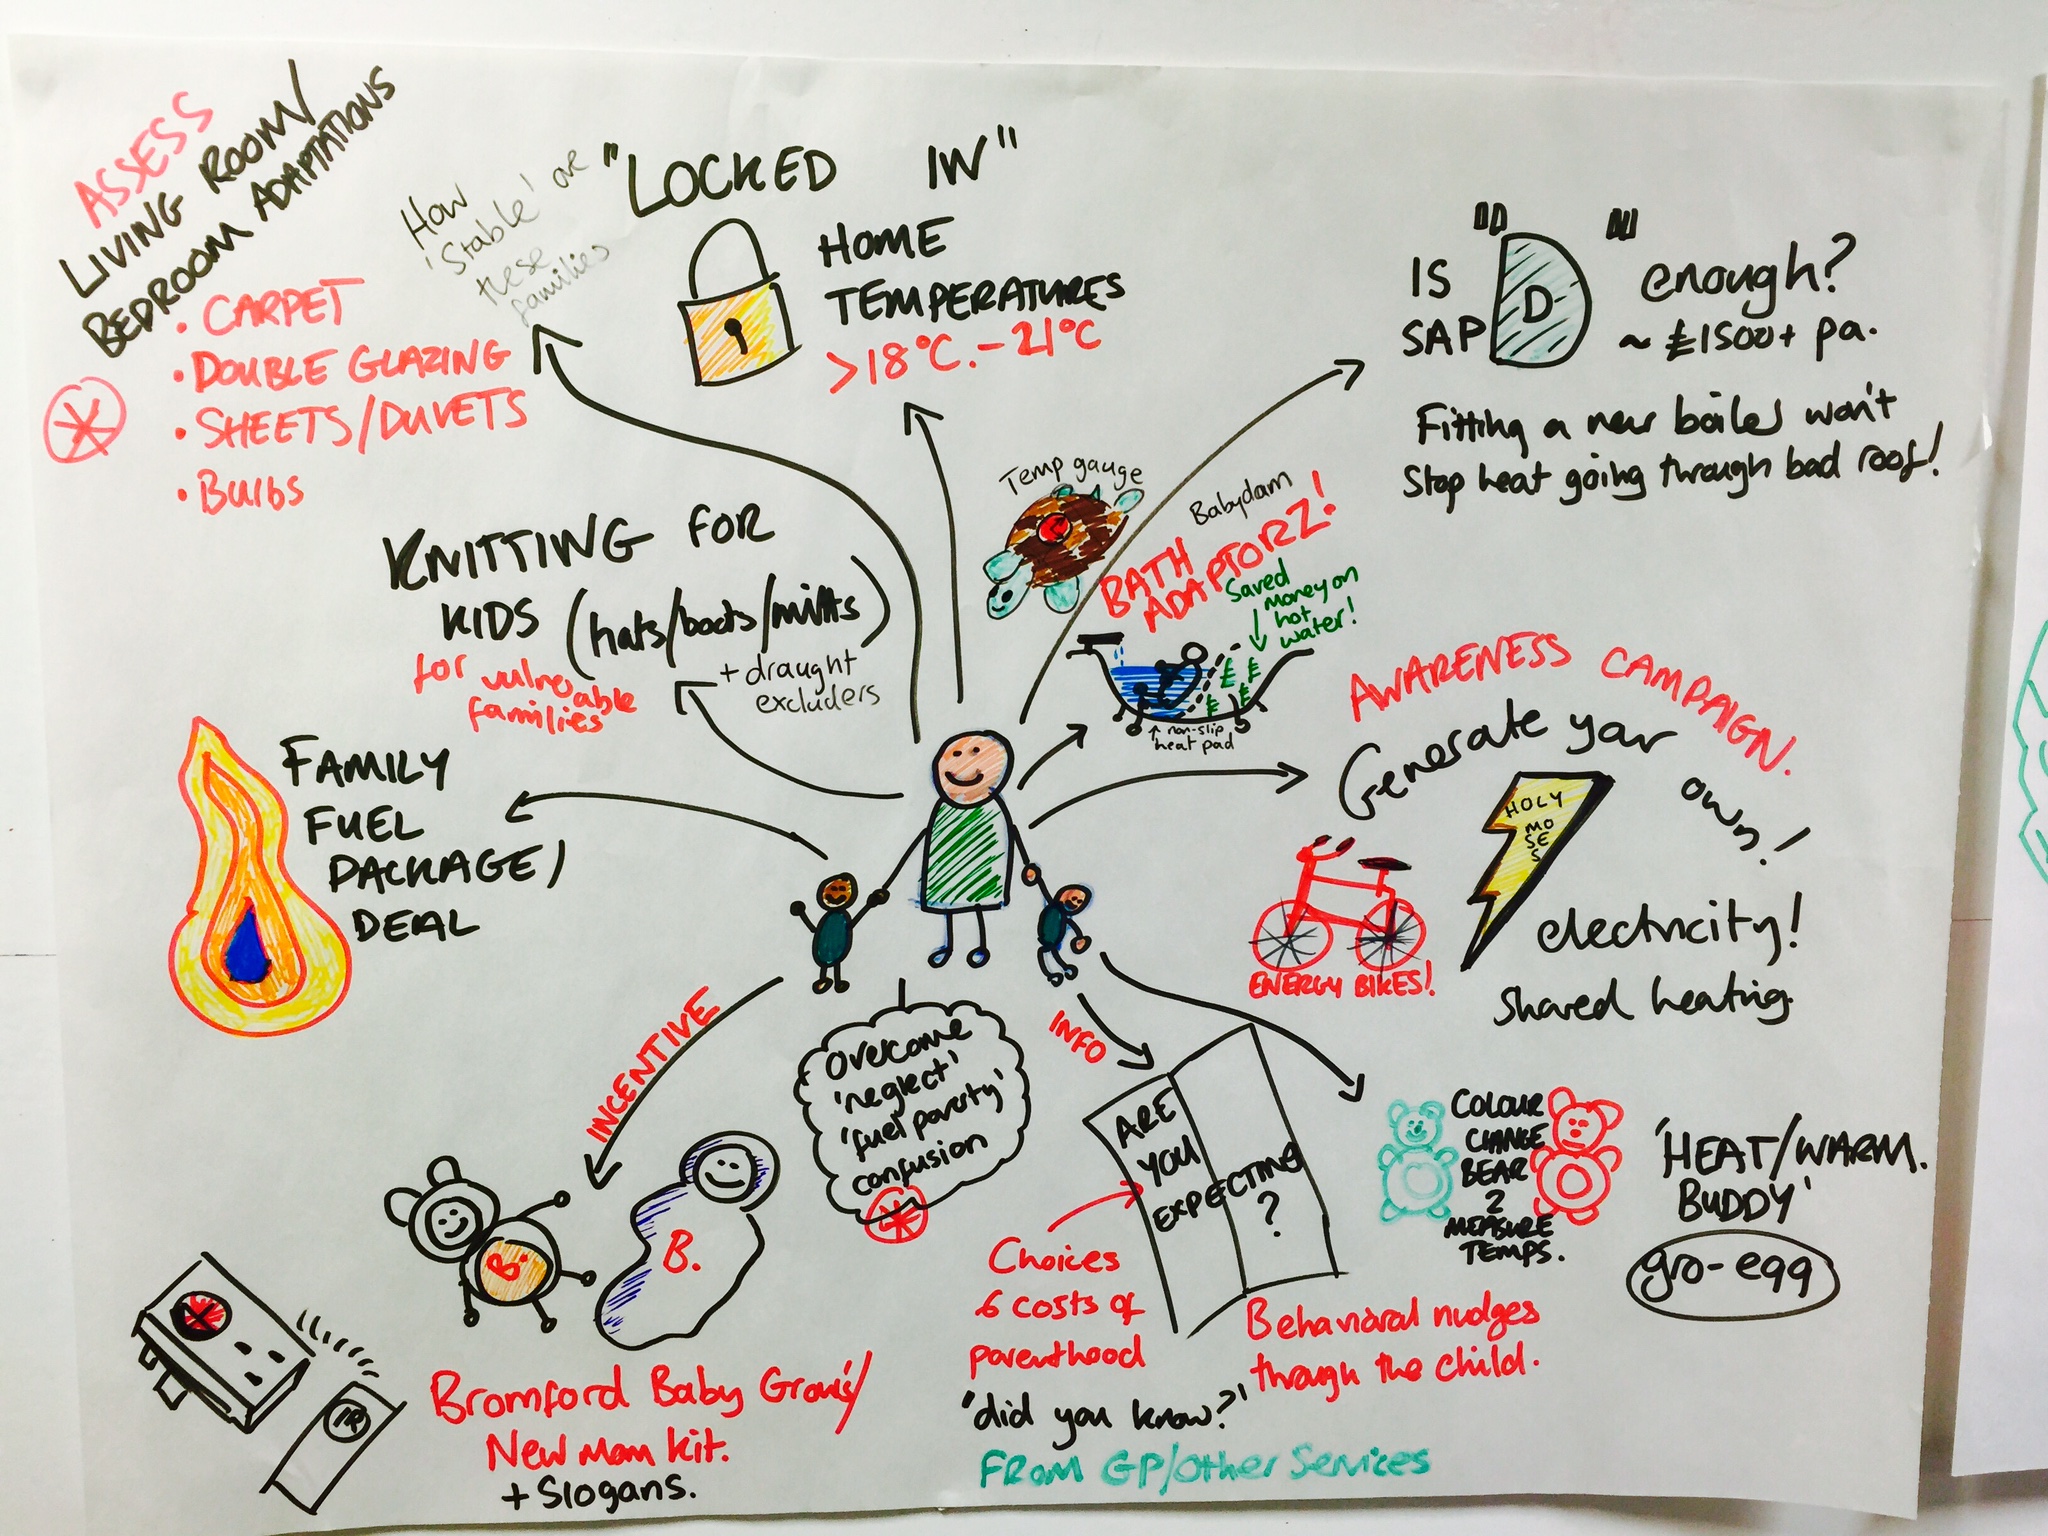 ASSESS
LIVING ROOM/
BEDROOM ADAPTATIONS
• CARPET
• DOUBLE GLAZING
• SHEETS/DUVETS
• BULBS
How
'Stable' are
these
families
"LOCKED IN"
HOME
TEMPERATURES
>18°C.-21°C
IS
SAP
"D"
enough?
~ £1500+ pa.
Fitting a new boiler won't
Stop heat going through bad roof!
KNITTING FOR
KIDS (hats/boots/mitts)
for vulnerable
families
+ draught
excluders
Temp gauge
Babydam
BATH
ADAPTORZ!
Saved
money on
hot
water!
non-slip
heat pad
AWARENESS CAMPAIGN.
Generate your own!
HOLY
MO
SE
S
electricity!
Shared heating.
ENERGY BIKES!
FAMILY
FUEL
PACKAGE/
DEAL
INCENTIVE
B.
B.
Bromford Baby Grows/
New mom kit.
+ Slogans.
Overcome
'neglect'
'fuel poverty'
confusion
INFO
ARE
YOU
EXPECTING
?
Choices
& costs of
parenthood
'did you know?'
FROM GP/Other Services
Behavioral nudges
through the child.
COLOUR
CHANGE
BEAR
2
MEASURE
TEMPS.
'HEAT/WARM.
BUDDY'
gro-egg